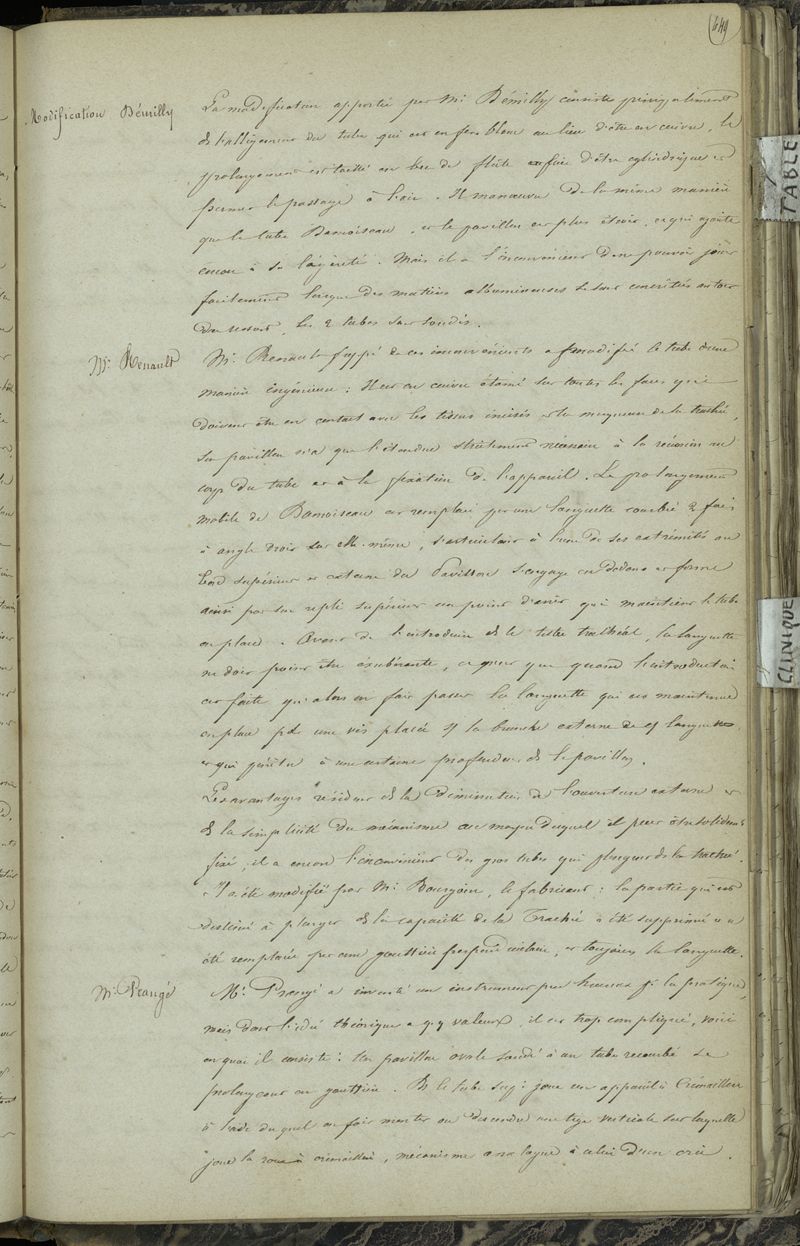 649
Modification Bémilly
La modification apportée par Mr Bémilly consiste principalement
ds l'alligement du tube qui est en fer blanc au lieu d'être en cuivre, le
prolongement est taillé en bec de flûte afin d'être cylindrique et
permet le passage à l'air. Il manœuvre de la même manière
que le tube Damoiseau, et le pavillon est plus étroit, ce qui ajoute
encore à sa légèreté. Mais il a l'inconvénient de ne pouvoir jouer
facilement lorsque des matières albumineuses se sont concrétées autour
du ressort, les 2 tubes sont soudés.
Mr Renault
Mr Renault frappé de ces inconvénients a modifié le tube d'une
manière ingénieuse : Il est en cuivre étamé sur toutes les faces qui
doivent être en contact avec les tissus incisés et la muqueuse de la trachée,
son pavillon n'a que l'étendue strictement nécessaire à la réunion au
corps du tube et à la fixation de l'appareil. Le prolongement
mobile de Damoiseau est remplacé par une languette courbée 2 fois
à angle droit sur elle-même, s'articulant à l'une de ses extrémités au
bord supérieur et externe du Pavillon s'engage en dedans et forme
ainsi par son repli supérieur un point d'arrêt qui maintient le tube
en place. Avant de l'introduire ds le tube trachéal, la languette
ne doit point être exubérante, ce n'est que quand l'introduction
est faite qu'alors on fait passer la languette qui est maintenue
en place par une vis placée sur la branche externe de languette
et qui pénètre à une certaine profondeur ds le pavillon.
Les avantages résident ds la diminution de l'ouverture externe et
ds la simplicité du mécanisme au moyen duquel il peut être solidemt
fixé, il a encore l'inconvénient des gros tubes qui plongent ds la trachée.
Il a été modifié par Mr Bourgoin, le fabricant : la partie qui est
destinée à plonger ds la capacité de la Trachée a été supprimée et a
été remplacée par une gouttière perpendiculaire, et toujours la languette.
Mr Prangé
Mr Prangé a inventé un instrument peu heureux pr la pratique,
mais dont l'idée théorique a qq valeur, il est trop compliqué, voici
en quoi il consiste : Un pavillon ovale soudé à un tube recourbé se
prolongeant en gouttière. Ds le tube supr joue un appareil à Crémaillère
à l'aide duquel on fait monter ou descendre une tige verticale sur laquelle
joue la roue à crémaillère, mécanisme analogue à celui d'un cric.
TABLE
CLINIQUE